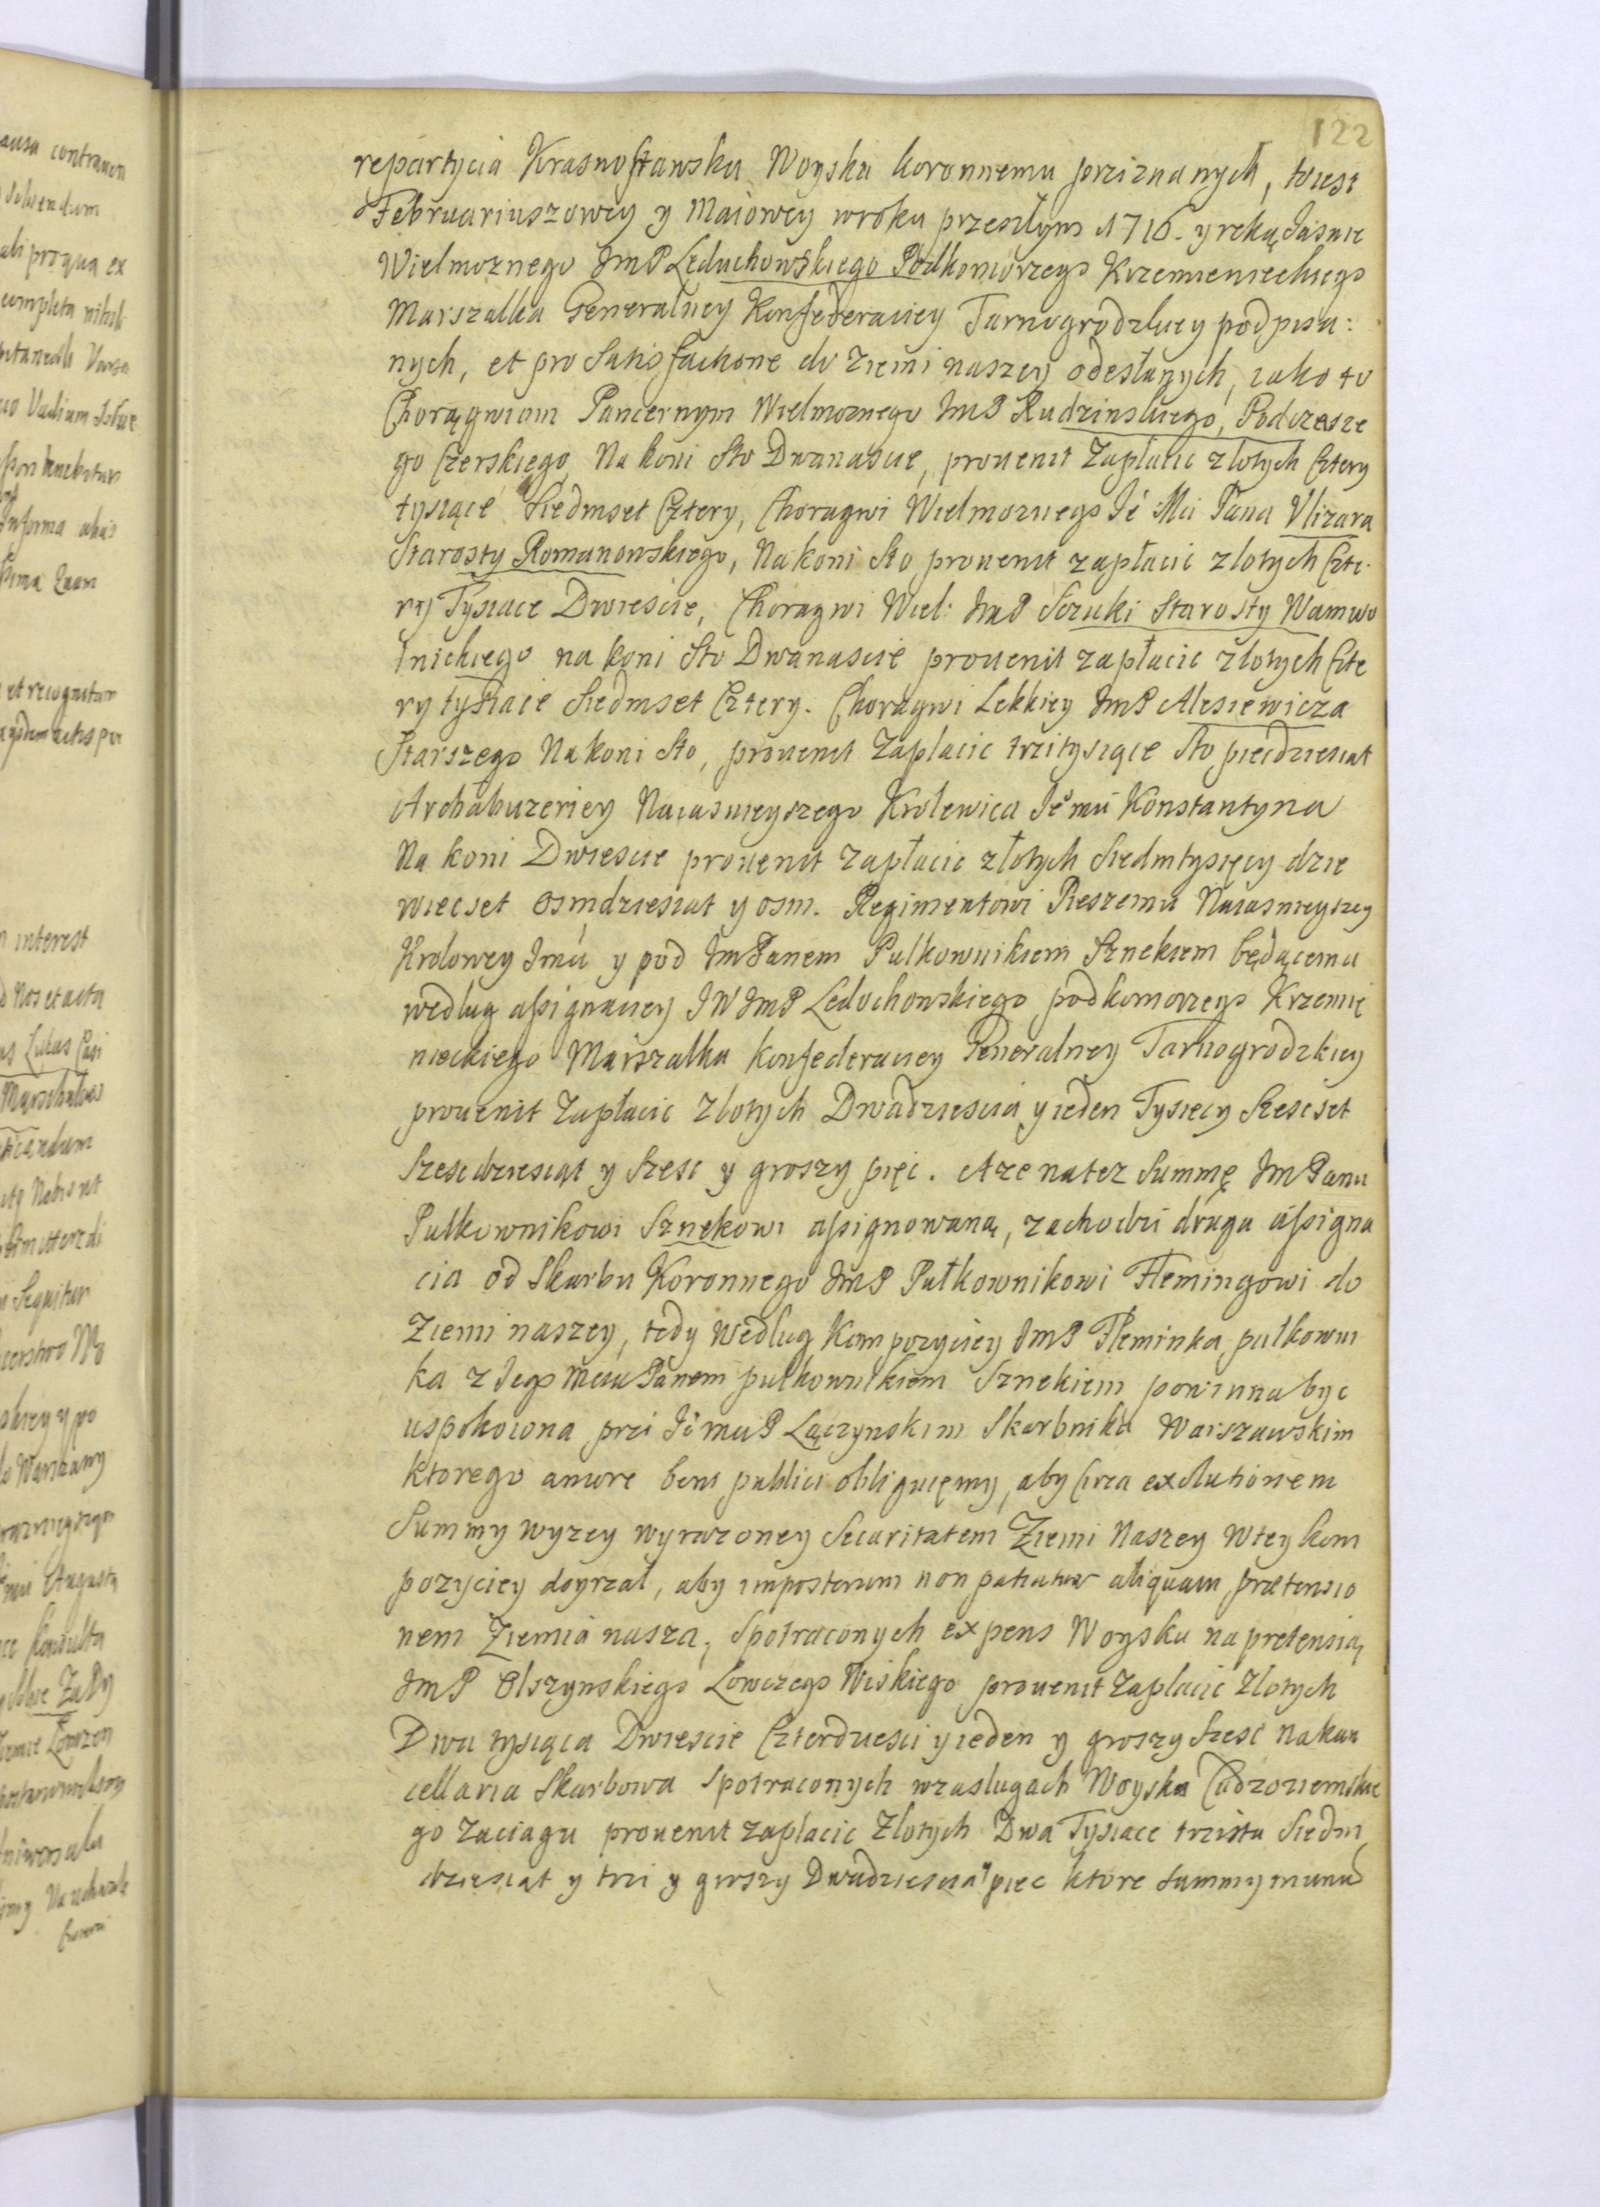 122
repartycia Krasnostawska Woysku koronnemu przıznanych, to iest
Februariuszowey y Maiowey wroku przeszłym 1716. y ręką Jasnie
Wielmoznego JmP Leduchowskiego Podkomorzego Krzemienieckiego
Marszałka Generalney Konfederacıey Tarnogrodzkıey podpısa:
nych, et pro Satisfactione do ziemi naszey odesłanych, iako to
Chorągwiom Pancernym Wielmoznego JmP Rudzinskiego, Podczasze
go Czerskiego, Na koni Sto Dwanascie, prouenit Zapłacic złotych Cztery
tysiące Siedmset Cztery, Choragwi Wielmoznego Jė Mci Pana Vlizara
Starosty Romanowskiego, Na koni Sto prouenit zapłacic złotych Czte-
ry Tysiace Dwiescie, Choragwi Wiel: JmP Sczuki Starosty Wąmwo
lnickiego na koni Sto Dwanascie prouenit zapłacic złotych Czte
ry tysiace Siedmset Cztery. Choragwi Lekkiey JmP Alesiewicza
Starszego Na koni Sto, prouenit Zaplacic trzitysiące Sto piecdziesiat
Archabuzeriey Naiasnieyszego Krolewica Jemci Konstantyna
Na koni Dwiescie prouenit zapłacic złotych Siedmtysięcy dzie
wiecset osmdziesiat y osm. Regimentowi Pieszemu Naiasnieyszey
Krolowey Jmci y pod JmPanem Pułkownikiem Sznekiem będącemu
według assignacıey JW JmP Leduchowskiego podkomorzego Krzemię
nieckiego Marszałka konfederacıey Generalney Tarnogrodzkiey
prouenit Zapłacic Złotych Dwadziescia y ieden Tysięcy Szescset
Szescdziesiąt y Szesc y groszy pięc. A ze na tez Summę JmPanu
Pułkownikowi Sznekowi assignowaną, zachodzi druga assigna
cia od Skarbu Koronnego JmP Pułkownikowi Flemingowi do
Ziemi naszey, tedy według kompozyciey JmP Fleminka, pułkowni
ka z Jego Mciu Panem pułkownikiem Sznekiem powinna byc
uspokoiona przi JėmciP Łączynskim Skarbniku Warszawskim
ktorego amore boni publici obliguięmy, aby circa exolutionem
Summy wyzey wyrazoney Securitatem Ziemi Naszey w tey kom
pozyciey doyrzał, aby imposterum non patiatur aliquam prætensio
nem Ziemia nasza, Spotrąconych expens Woysku na pretensią
JmP Olszynskiego Łowczego Wiskiego prouenit Zapłacic Złotych
Dwa tysiąca Dwiescie Czterdziesci y ieden y groszy Szesc na kan
cellaria Skarbowa spotraconych wzasługach Woyska Cudzoziemskie
go Zaciagu prouenit zapłacic Złotych Dwa Tysiace trzista Siedm
dziesiąt y trzi y groszy Dwadziescia pięc ktore summy